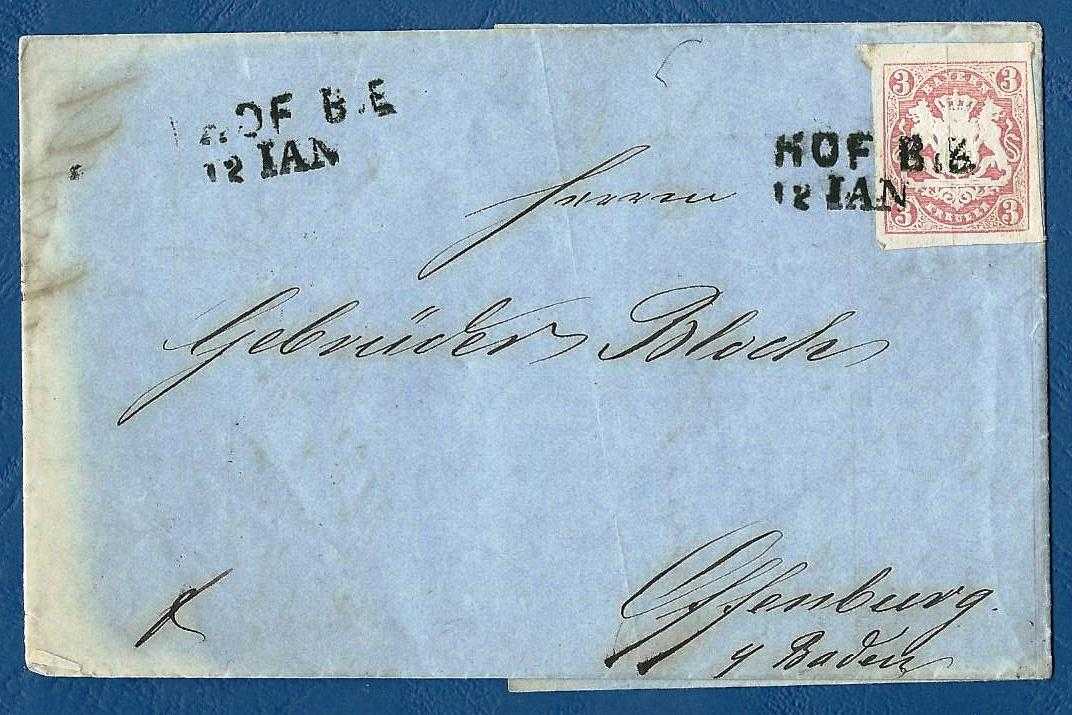 HOF B.E
12 IAN
3 BAYERN 3
HOF B.E.
12 IAN
3 KREUZER 3
Herrn
Gebrüder Bloch
Offenburg.
Baden